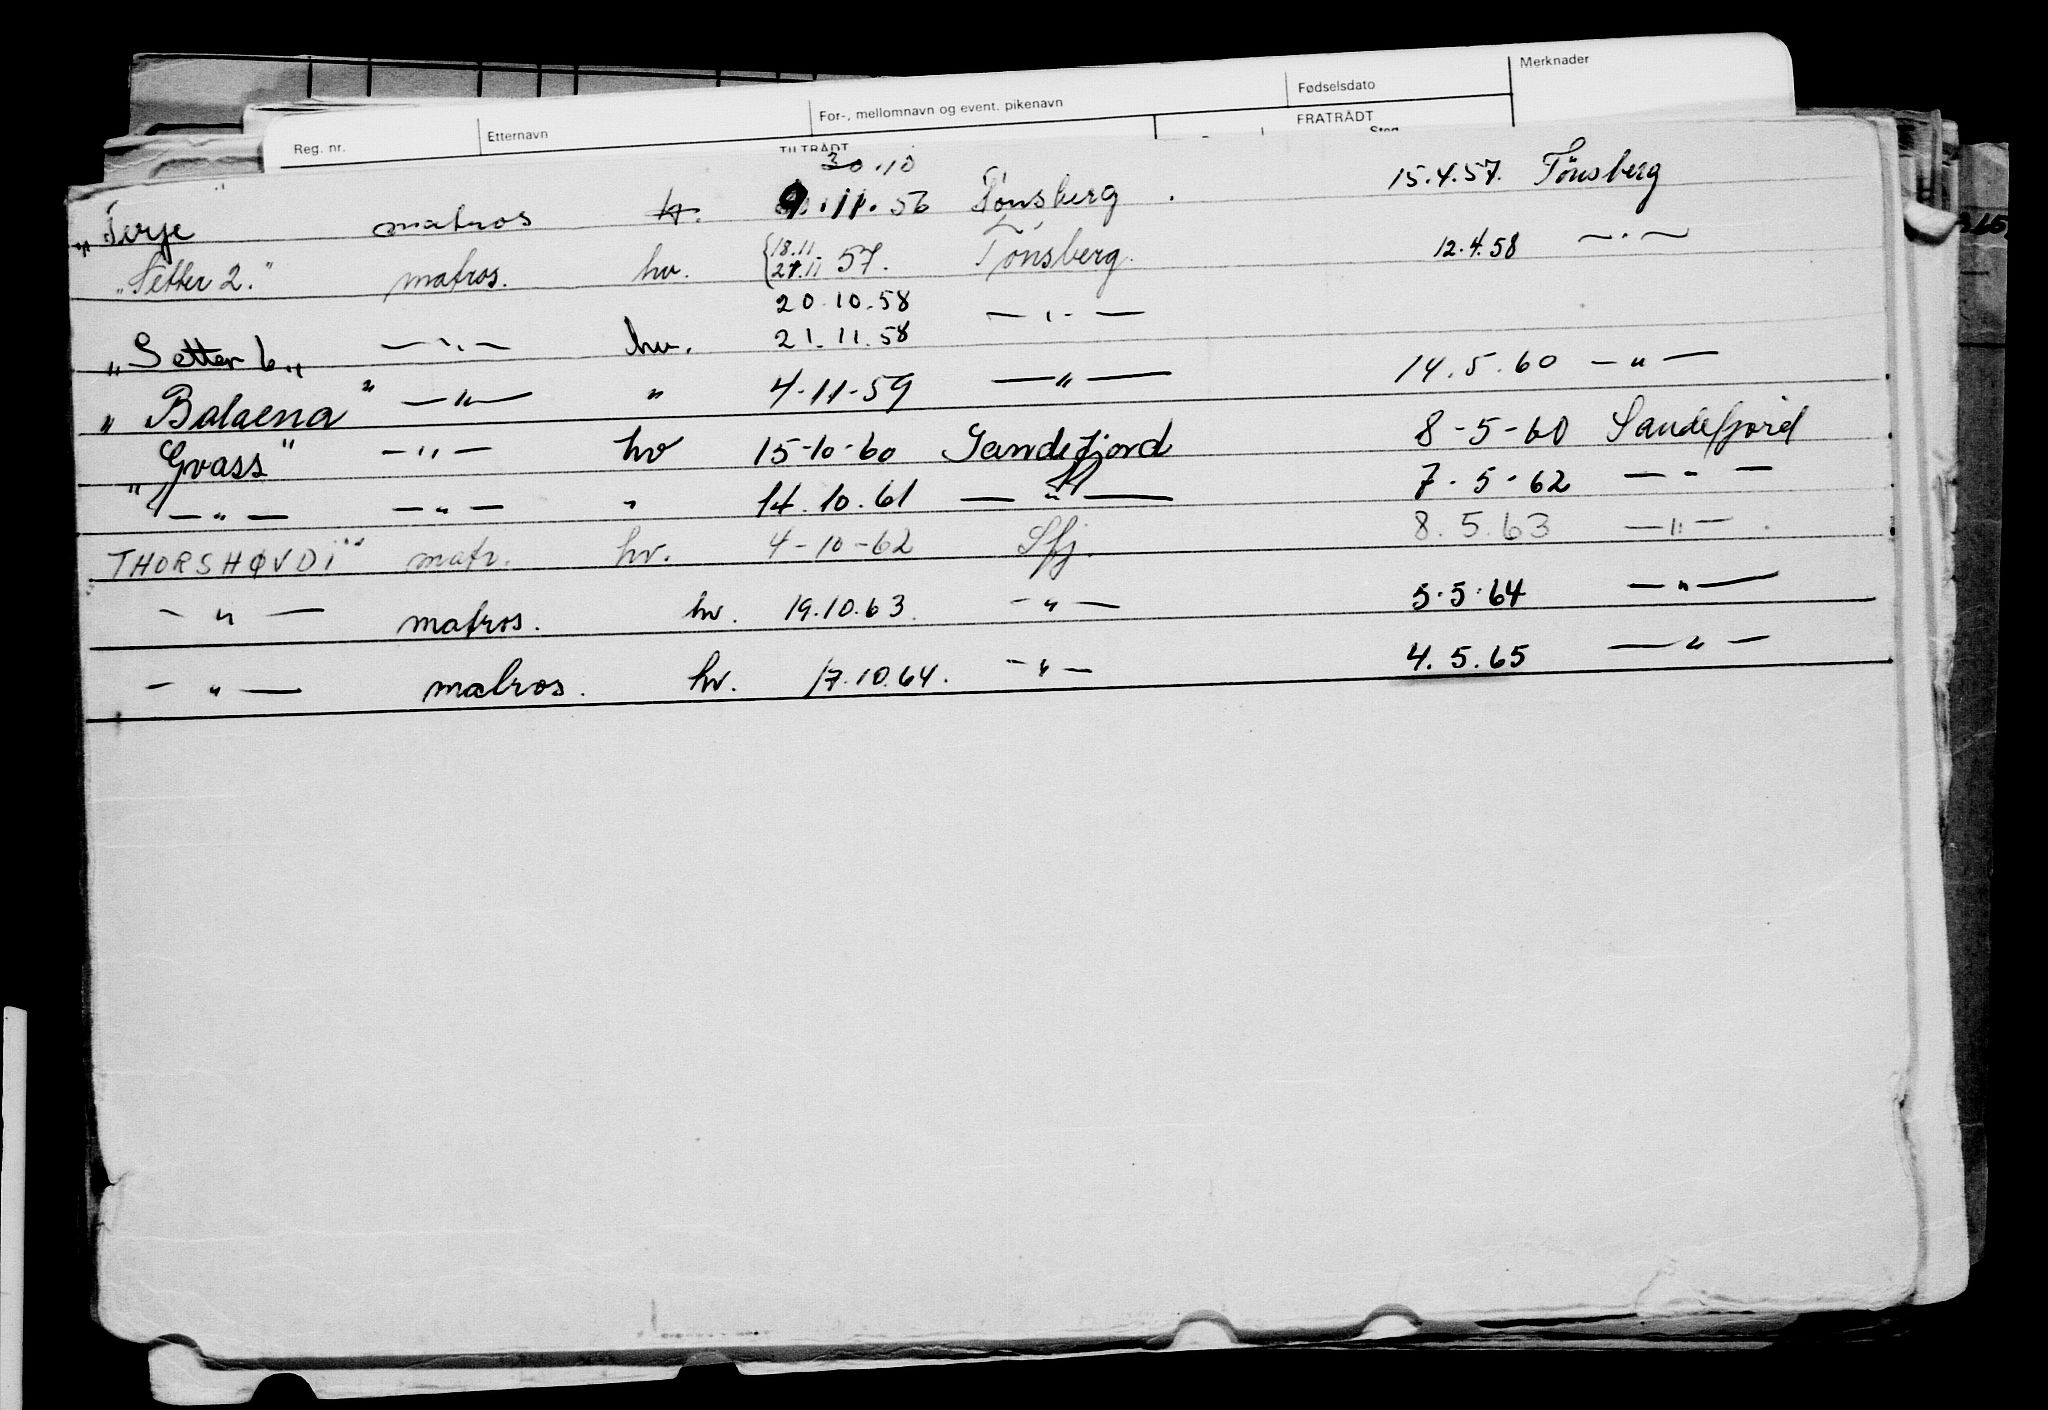 Merknader
Fødselsdato
For-, mellomnavn og event. pikenavn
Etternavn
Reg. nr.
FRATRÅDT
TILTRÅDT
30.10
„Terje" matros H. 9.11.56 Tønsberg. 15.4.57. Tønsberg
„Setter 2." matros. hv. {18.11 27.11 57. Tønsberg. 12.4.58 — " —
20.10.58
„Setter 6„ — " — hv. 21.11.58 — " —
„Balaena" — " — " 4-11-59 — " — 14.5.60 — " —
„Gvass" — " — hv 15-10-60 Sandefjord 8-5-60 Sandefjord
— " — — " — " 14.10.61 — " — 7-5-62 — " —
THORSHØVDI" matr. hv. 4-10-62 Sfj. 8.5.63 — " —.
— " — matros. hv. 19.10.63. — " — 5.5.64 — " —
— " — matros. hv. 17.10.64. — " — 4.5.65 — " —